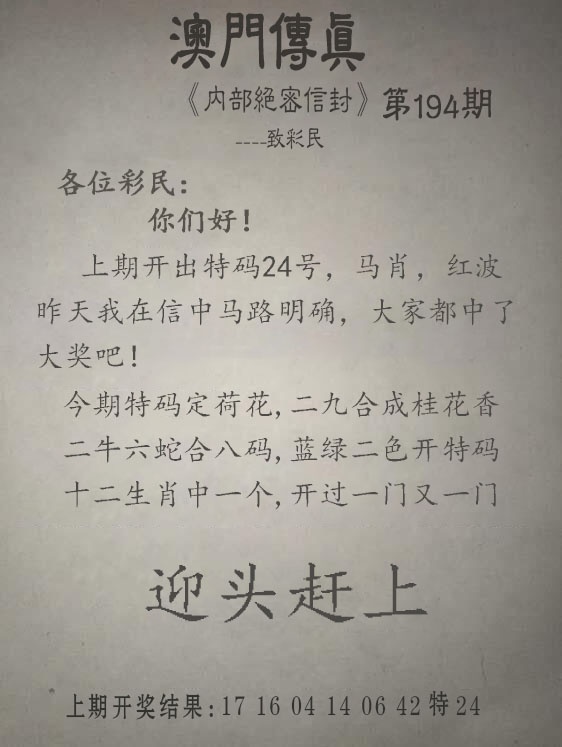 澳門傳眞
《内部絕密信封》第194期
----致彩民
各位彩民：
你们好！
上期开出特码24号，马肖，红波
昨天我在信中马路明确，大家都中了
大奖吧！
今期特码定荷花,二九合成桂花香
二牛六蛇合八码,蓝绿二色开特码
十二生肖中一个,开过一门又一门
迎头赶上
上期开奖结果:17 16 04 14 06 42 特 24